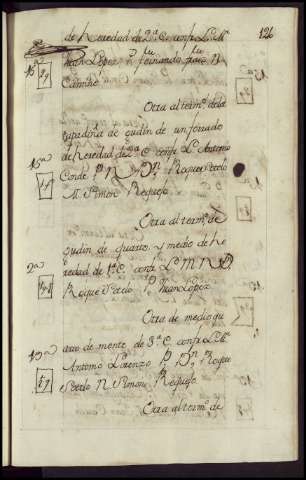 126
de heredad de 2ª C. confª L. M.
Juan Lopez P. Fernando N.
Camiño
Otra al termº de la
tapadiña de Gudin de un ferrado
15ª
de heredad de 2ª C. confª L. Antonio
Conde P. N. y Dn. Roque Sotelo
M. Simon Requejo
Otra al termº de
Gudin de quarto y medio de he
9ª
redad de 1ª C. confª L. M. N. D.
Roque Sotelo P. Juan Lopez
Otra de medio qu
19ª
arto de monte de 3ª C. confª L. M.
Antonio Lorenzo P. Dn. Roque
Sotelo N. Simon Requejo
Otra al termº de